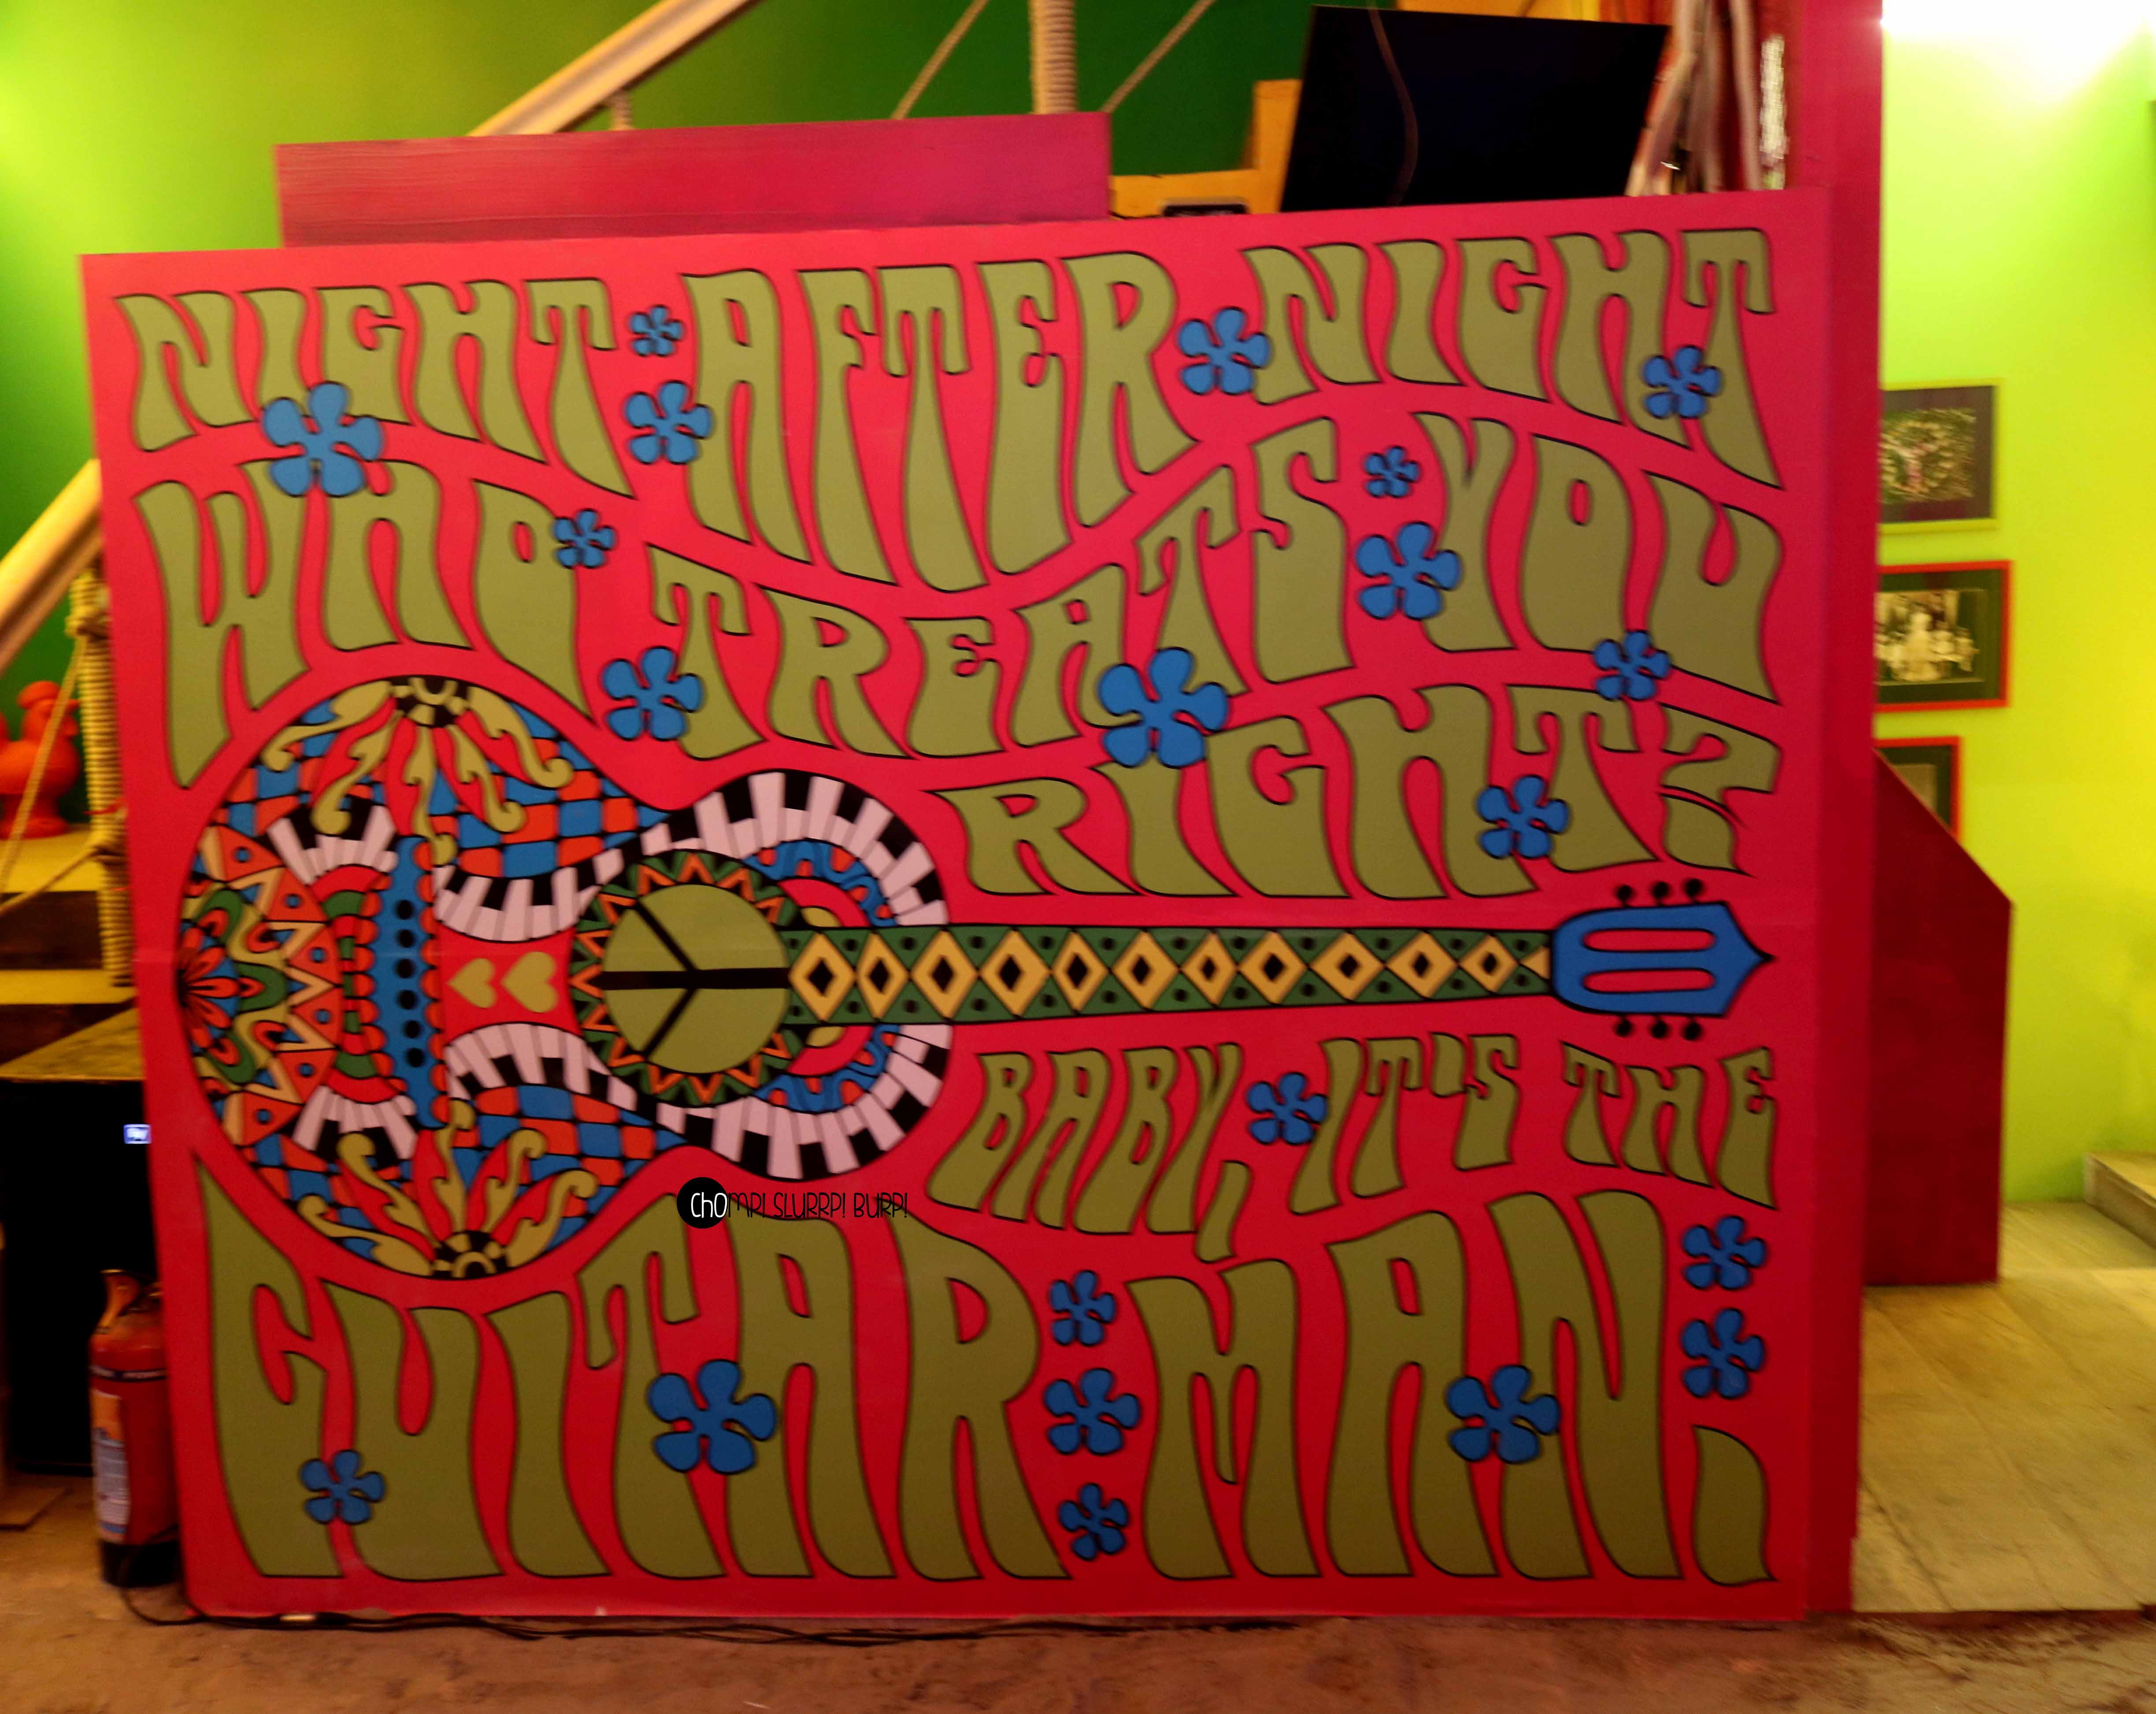 NIGHT AFTER NIGHT
WHO TREATS YOU
RIGHT?
BABY, IT'S THE
GUITAR MAN,
ChOMP! SLURRP! BURP!